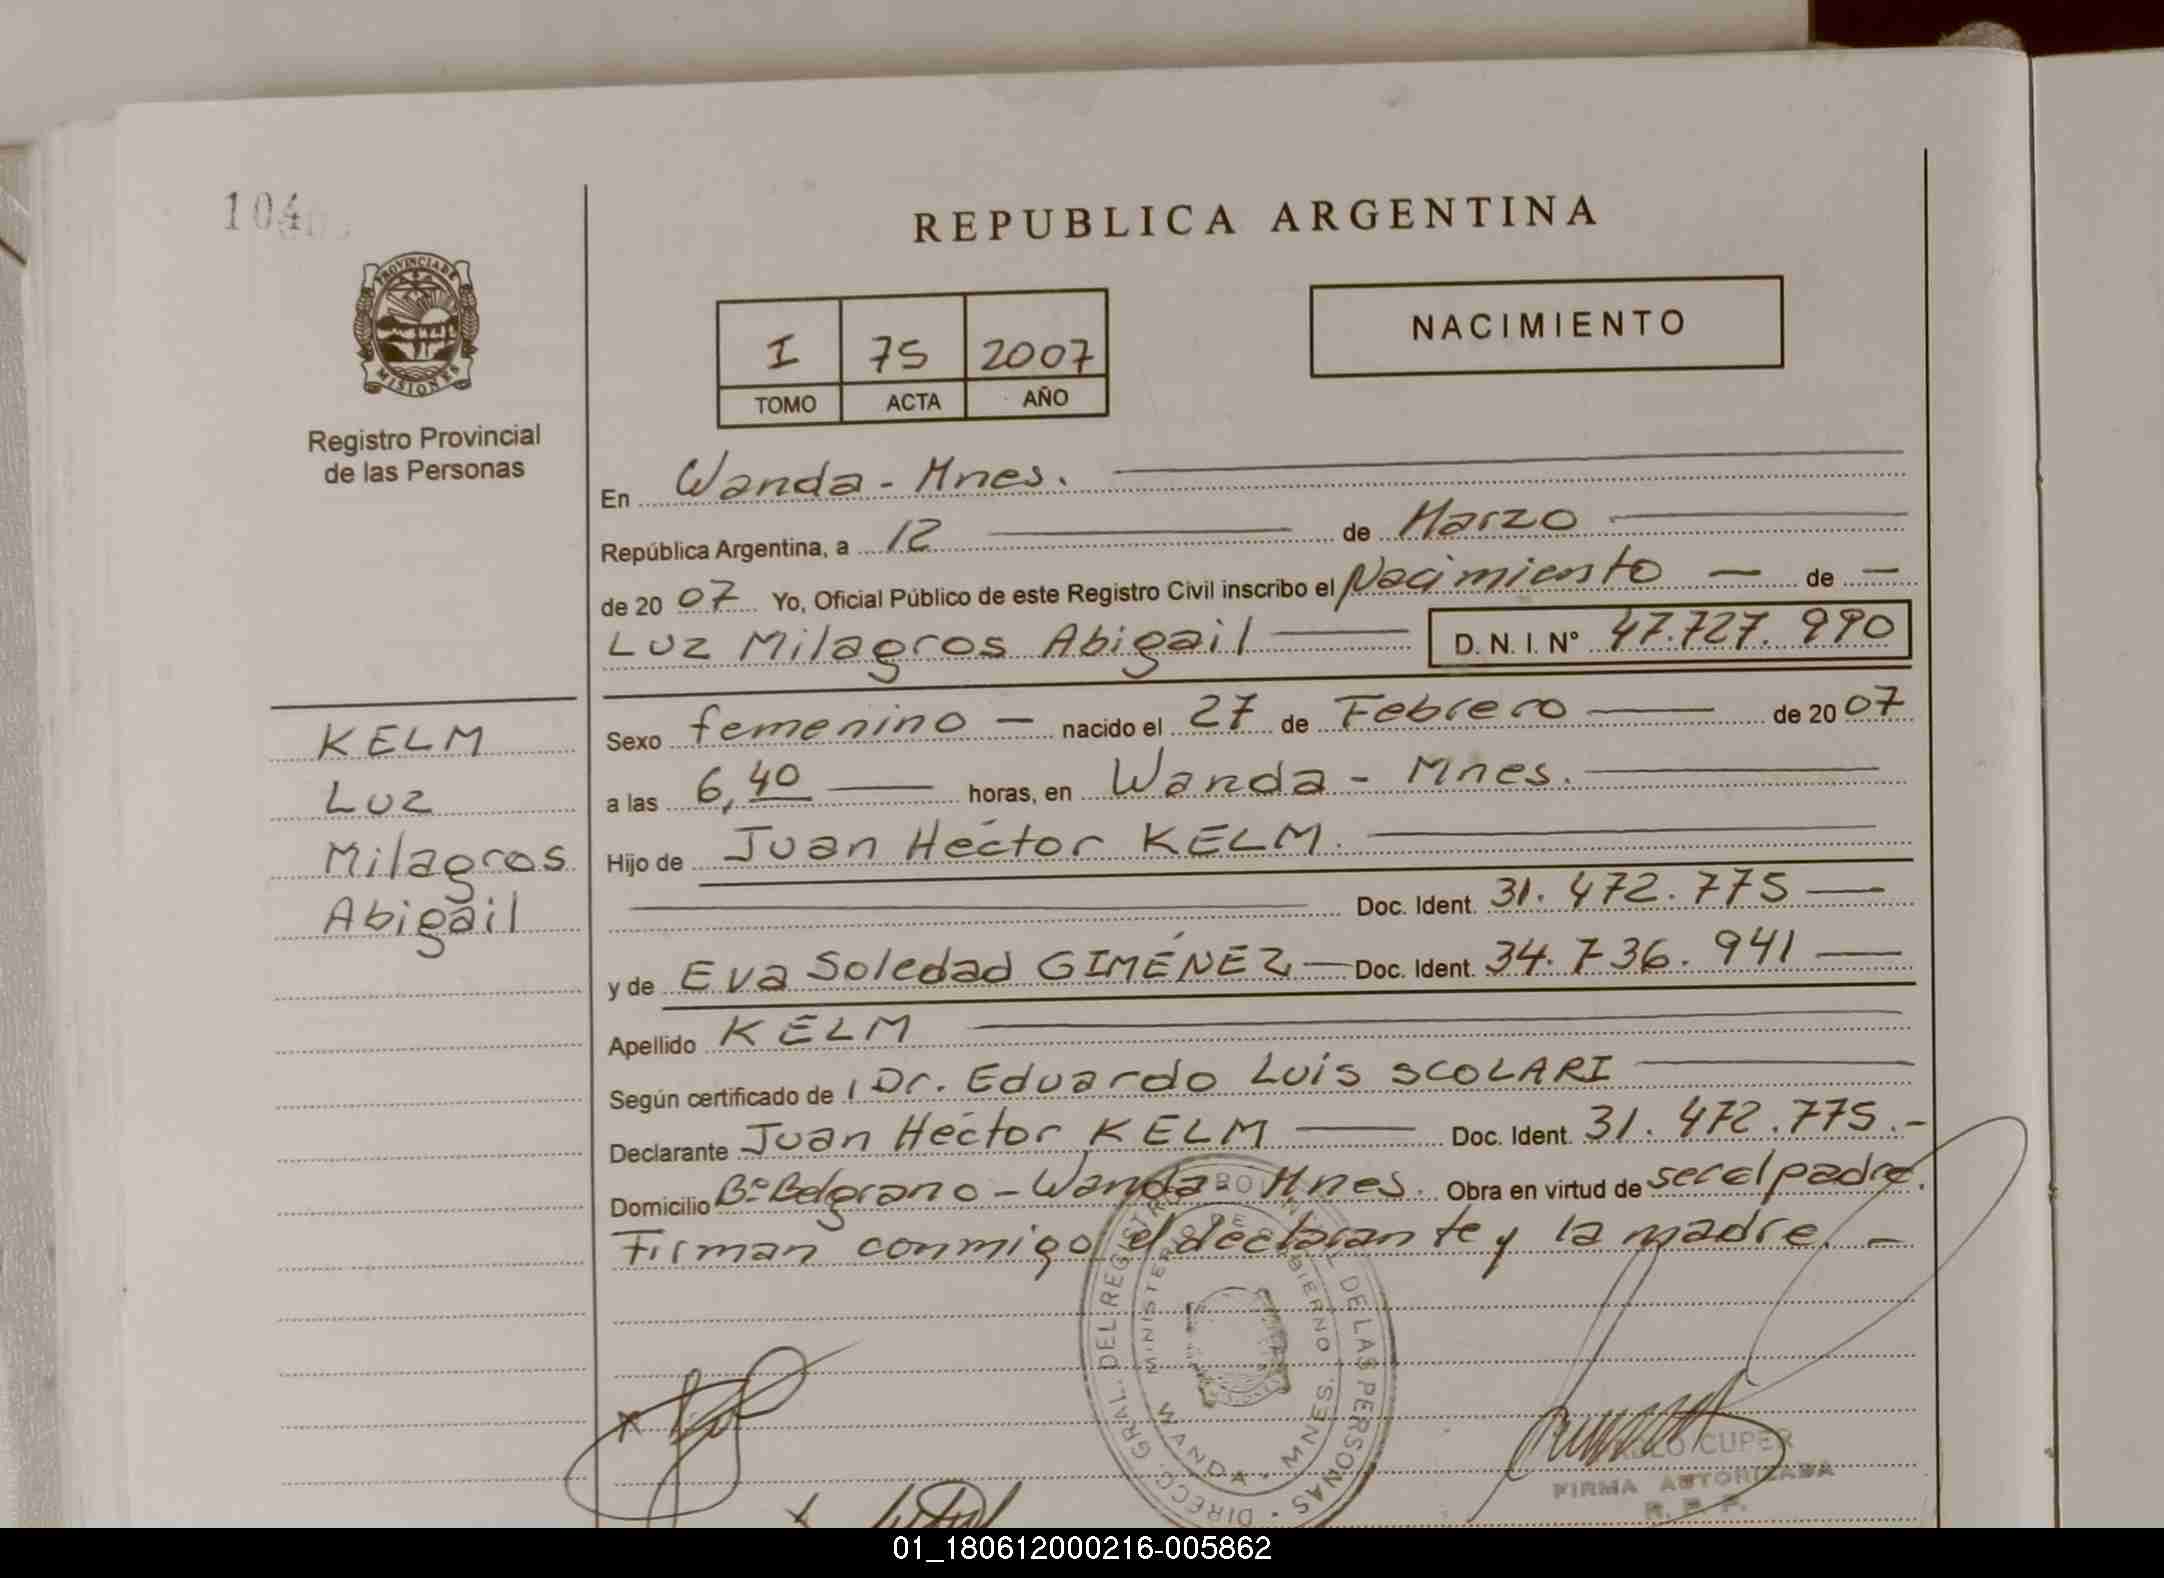 104
REPUBLICA ARGENTINA
PROVINCIA DE
MISIONES
Registro Provincial
de las Personas
I 75 2007
TOMO ACTA AÑO
NACIMIENTO
En Wanda - Mnes.
República Argentina, a 12 de Marzo
de 2007 Yo, Oficial Público de este Registro Civil inscribo el Nacimiento — de —
Luz Milagros Abigail D. N. I. N° 47.727.990
KELM
Luz
Milagros
Abigail
Sexo femenino — nacido el 27 de Febrero de 2007
a las 6,40 horas, en Wanda - Mnes.
Hijo de Juan Héctor KELM.
Doc. Ident. 31.472.775
y de Eva Soledad GIMÉNEZ — Doc. Ident. 34.736.941
Apellido KELM
Según certificado de Dr. Eduardo Luis SCOLARI
Declarante Juan Héctor KELM Doc. Ident. 31.472.775.-
Domicilio B° Belgrano - Wanda - Mnes. Obra en virtud de ser el padre.
Firman conmigo el declarante y la madre. -
DIRECC. GRAL. DEL REGISTRO PROVINCIAL DE LAS PERSONAS
MINISTERIO DE GOBIERNO
WANDA - MNES.
CUPER
FIRMA AUTORIZADA
01_180612000216-005862